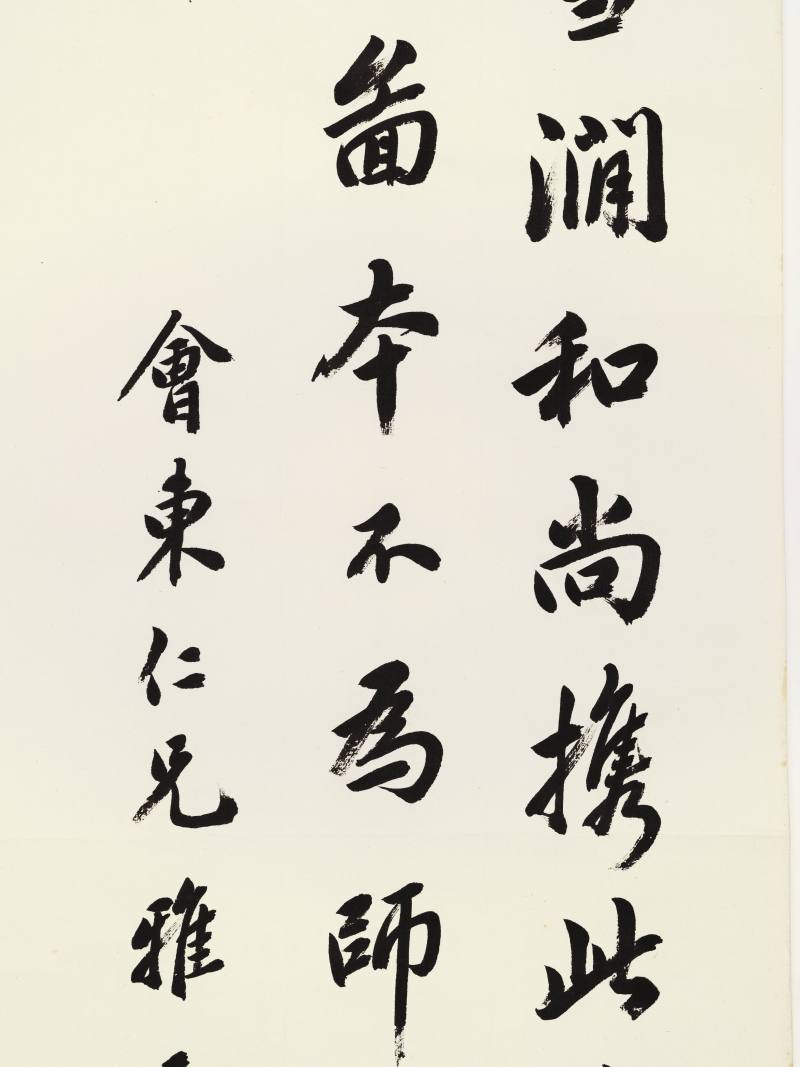 澗和尚携此
啚本不為師
會東仁兄雅